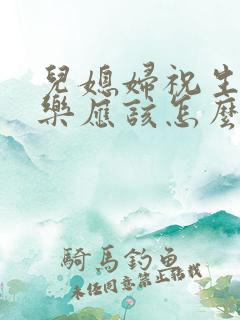 兒媳婦祝生
樂應該怎麼
騎馬釣魚
未经同意禁止转载